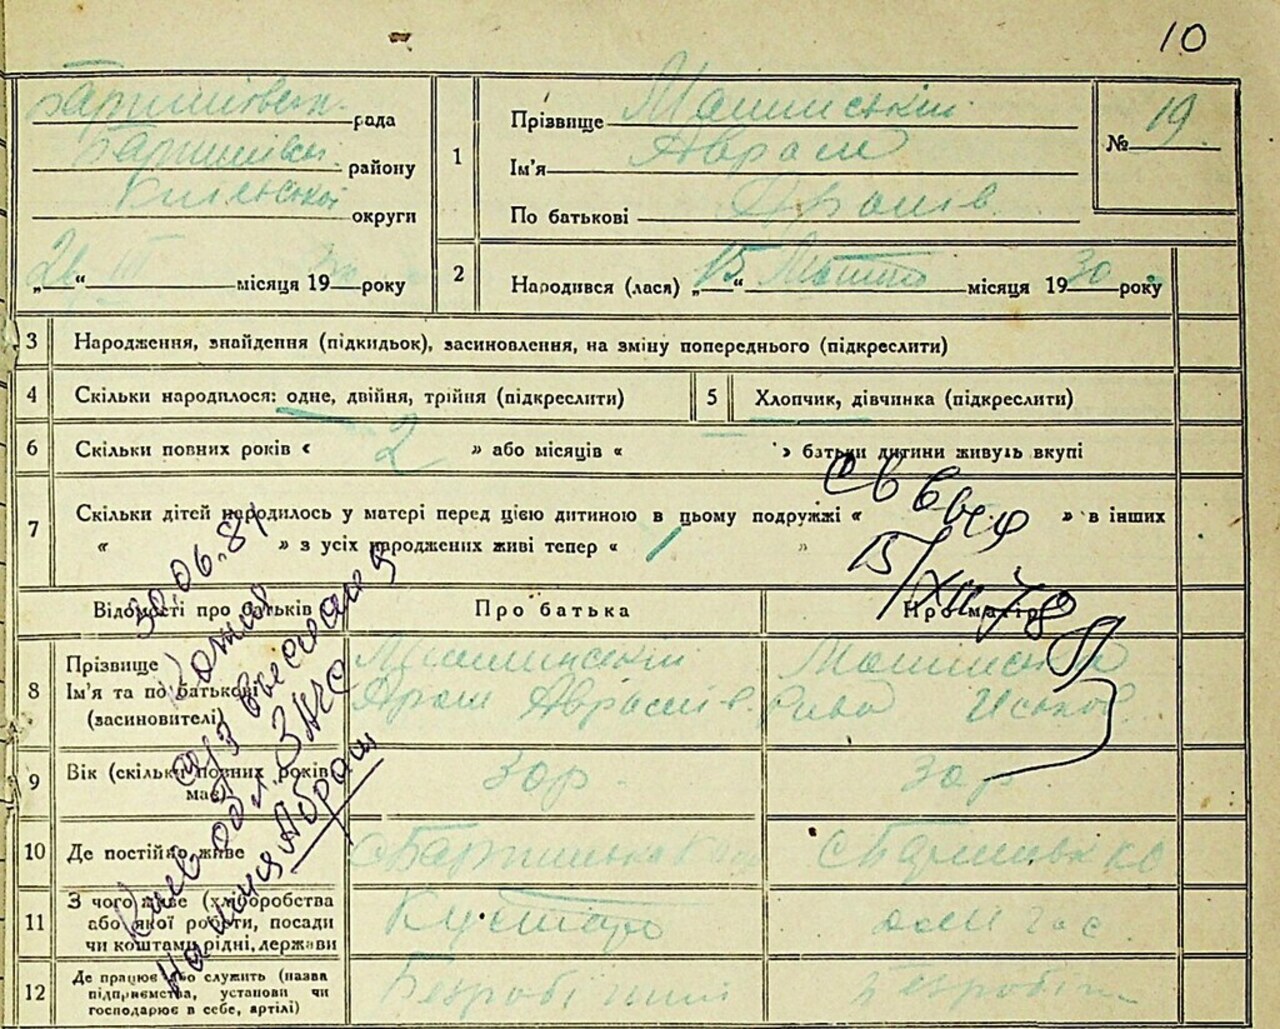 10
Баришівськ. рада
Баришівськ. району
Київської округи
„ “ III місяця 1930 року
1
Прізвище Машинський
Ім'я Аврам
По батькові Аронів
№ 19
2
Народився (лася) „15“ Лютого місяця 1930 року
3 Народження, знайдення (підкидьок), засиновлення, на зміну попереднього (підкреслити)
4 Скільки народилося: одне, двійня, трійня (підкреслити)
5 Хлопчик, дівчинка (підкреслити)
6 Скільки повних років « 2 » або місяців « » батьки дитини живуть вкупі
7 Скільки дітей народилось у матері перед цією дитиною в цьому подружжі « » в інших
« » з усіх народжених живі тепер « 1 »
15/XII 78
30.06.81
Киев обл. ЗАГС
на имя Абрам
Відомості про батьків
Про батька
Про матір
8 Прізвище
Ім'я та по батькові
(засиновителі)
Машинський
Арон Аврамів.
Рива
9 Вік (скільки повних років
має)
30 р.
30 р
10 Де постійно живе
с Баришівка
с Баришівка
11 З чого живе (хліборобства
або якої роботи, посади
чи коштами рідні, держави
Кустарь
дом гос
12 Де працює або служить (назва
підприємства, установи чи
господарює в себе, артілі)
Безробітний
Безробітн